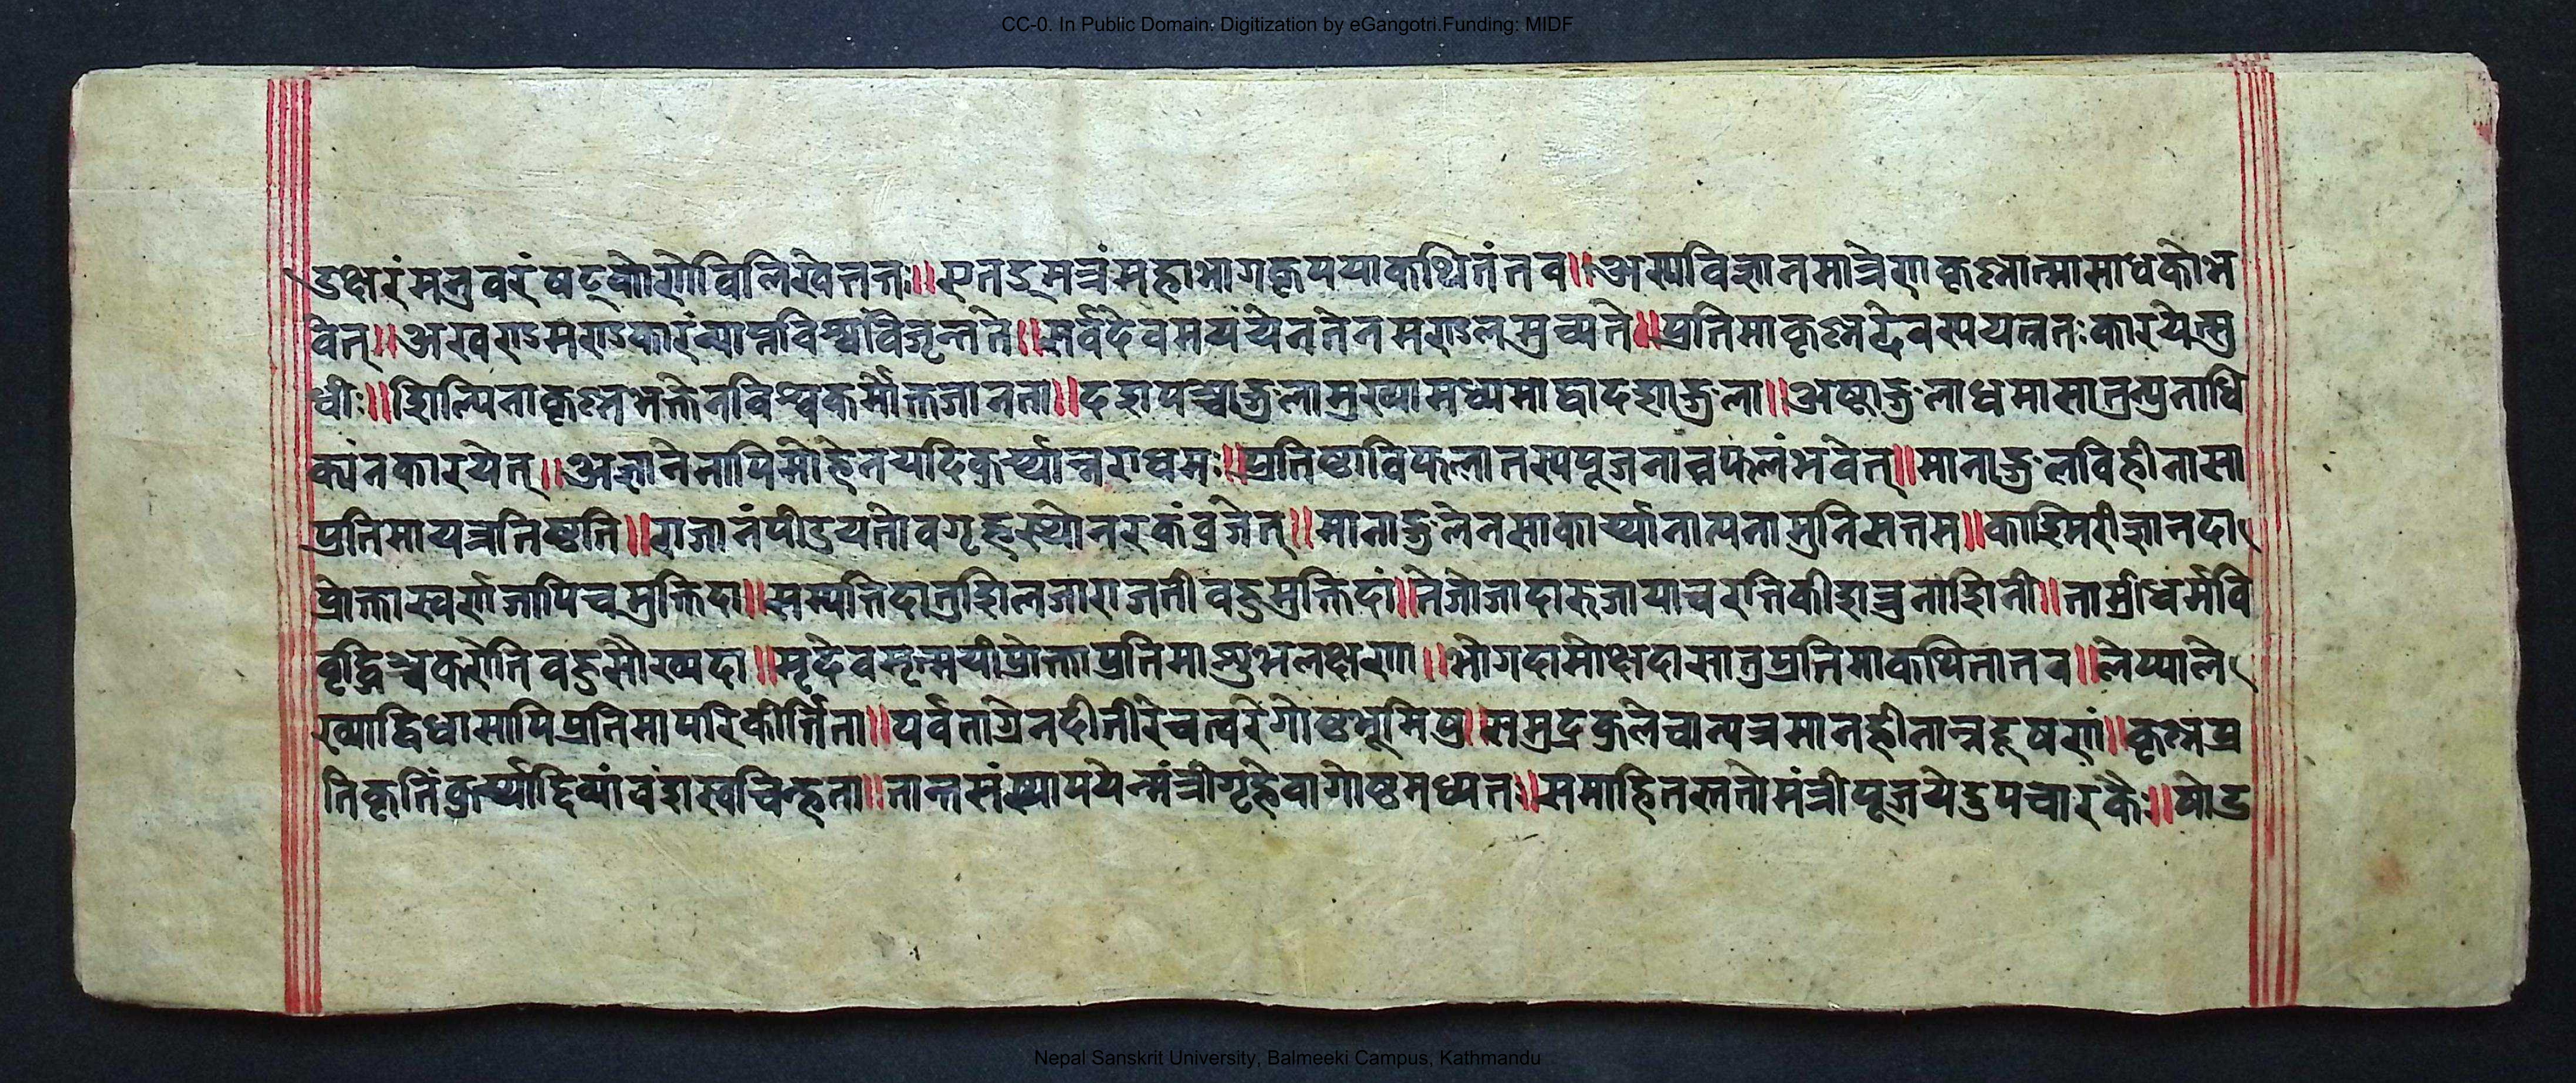 CC-0. In Public Domain. Digitization by eGangotri.Funding: MIDF
डक्षरंमनुवरंषट्कोणेविलिखेत्ततः॥एतद्यन्त्रंमहाभागकृपयाकथितंतव॥अस्यविज्ञानमात्रेणकृष्णात्मासाधकोभ
वेत्॥अखण्डमण्डकारंव्याप्तविश्वंविजृन्तते॥सर्वदेवमयंयेनतेनमण्डलमुच्यते॥प्रतिमाकृष्णदेवस्ययत्नतःकारयेत्सु
धीः॥शिल्पिनाकृष्णभक्तेनविश्वकर्मोक्तजानता॥दशपञ्चाङ्गुलामुख्यामध्यमाद्वादशाङ्गुला॥अष्टाङ्गुलाधमासातुन्युनाधि
क्यंनकारयेत्॥अज्ञानेनापिमोहेनयदिकुर्य्यान्नराधमः॥प्रतिष्ठाविफलातस्यपूजनान्नफलंभवेत्॥मानाङ्गुलविहीनासा
प्रतिमायत्रतिष्ठति॥राजानंपीडयतीवगृहस्थोनरकंव्रजेत्॥मानाङ्गुलेनसाकार्य्यानात्यनामुनिसत्तम॥काश्मिरीज्ञानदा
प्रोक्तास्वर्णजापिचमुक्तिदा॥सम्पत्तिदातुशिलजाराजतीवहुमुक्तिदां॥तेजोजादारुजायाचरतिकीशत्रुनाशिनी॥ताम्रीधर्मवि
वृद्धिञ्चकरोतिवहुसौख्यदा॥मृदेवमृन्मयीप्रोक्ताप्रतिमाशुभलक्षणा॥भोगदामोक्षदासातुप्रतिमाकथितातव॥लेप्याले
ख्याद्विधासापिप्रतिमापरिकीर्त्तिता॥पर्वताग्रेनदीतीरेचत्वरेगोष्ठभूमिषु॥समुद्रकुलेचान्यत्रमानहीतान्नदूषणं॥कृष्णप्र
तिकृतिंकुर्य्याद्दिव्यांवंशस्वचिन्हता॥तान्तसंस्थापयेन्मंत्रीगृहेवागोष्ठमध्यतः॥समाहितस्ततोमंत्रीपूजयेदुपचारकैः॥षोड
Nepal Sanskrit University, Balmeeki Campus, Kathmandu